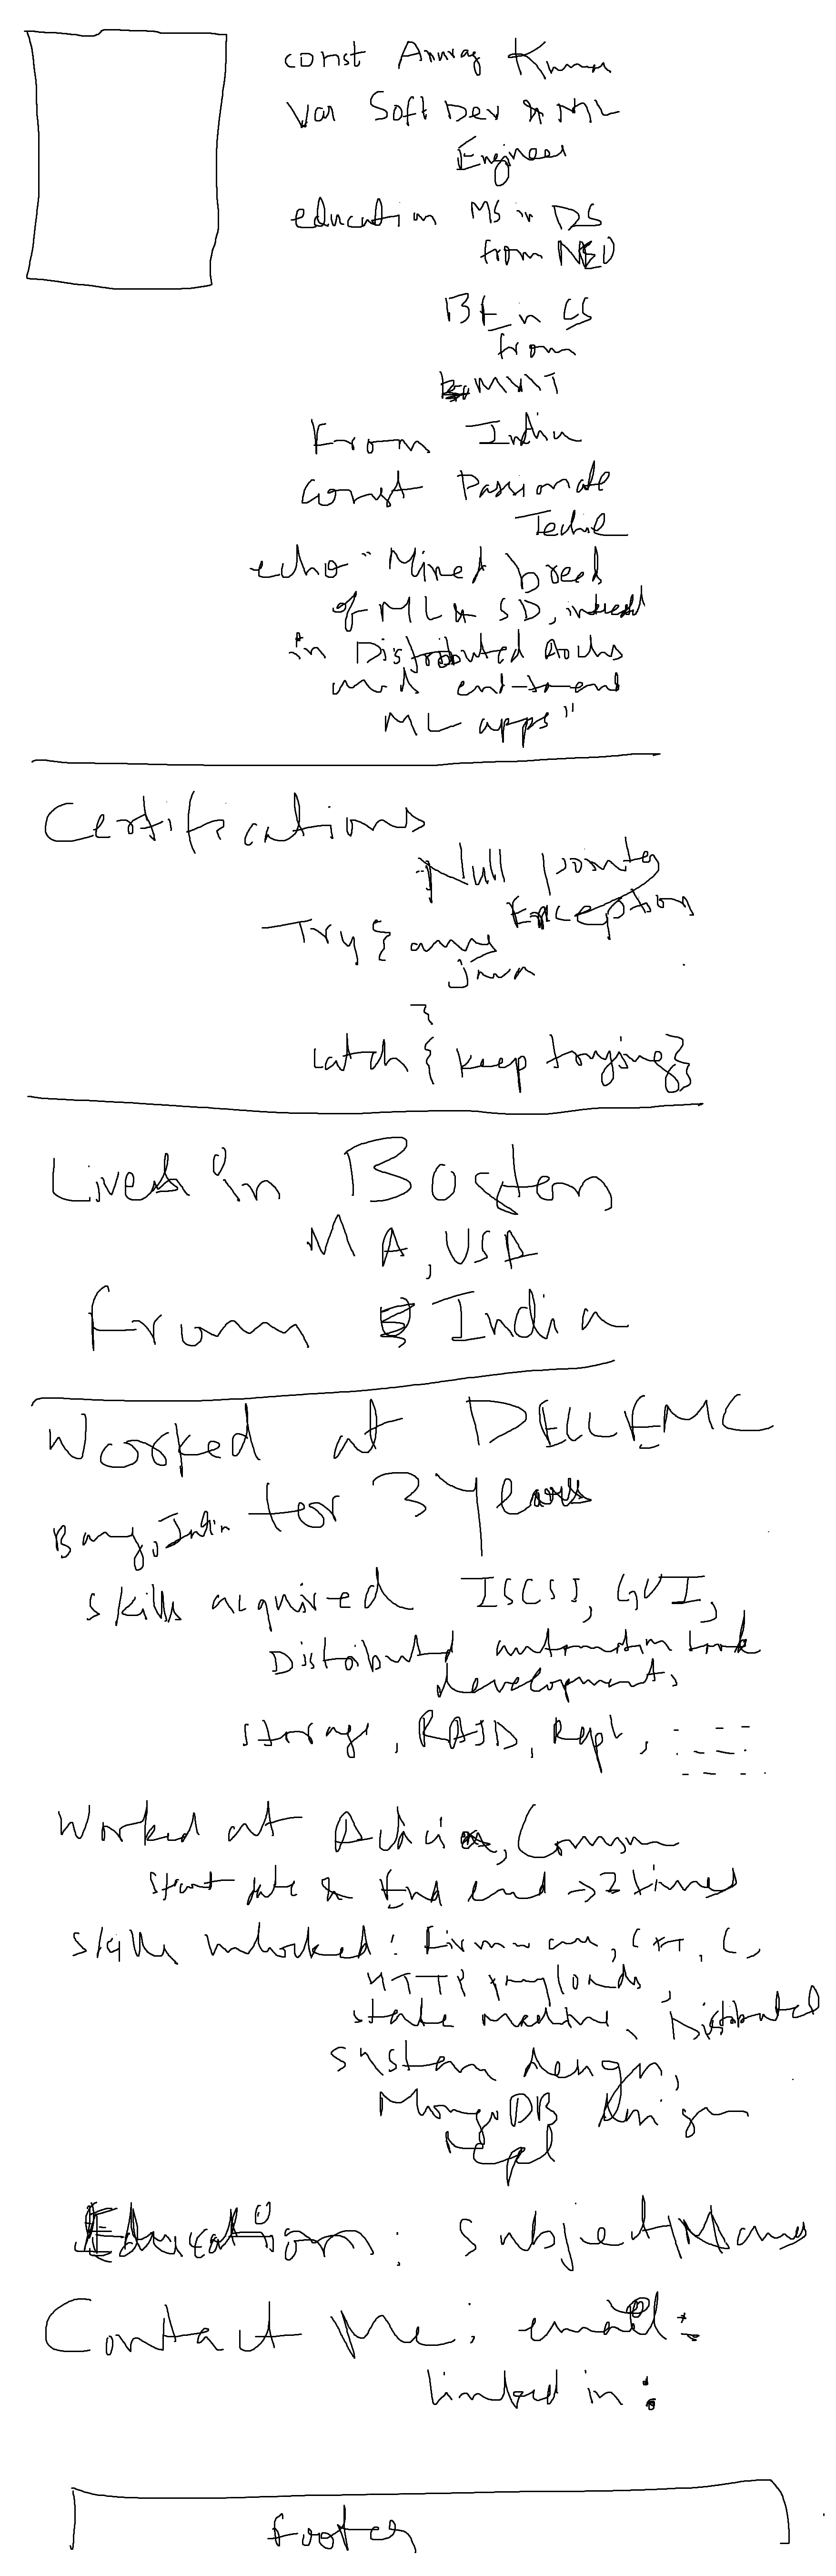 const Anurag Kumar
Var Soft Dev & ML
Engineer
education MS in DS
from NEU
BE in CS
from
MVIT
From India
const Passionate
Techie
echo "Mixed breed
of ML & SD, interest
in Distributed
and end-to-end
ML apps"
Certifications
Null pointer
Exception
Try { any
java
}
catch { keep trying }
Lives in Boston
MA, USA
from India
Worked at DELL EMC
Bang, India for 3 Years
skills acquired ISCSI, GUI,
Distributed automation tools
development,
storage, RAID, Repl,
Worked at
start date & End end → 2 times
skills unlocked: firmware, C++, C,
HTTP payloads,
state machine, Distributed
system design,
MongoDB design
repl
Education: subject/Name
Contact Me: email:
linked in:
footer